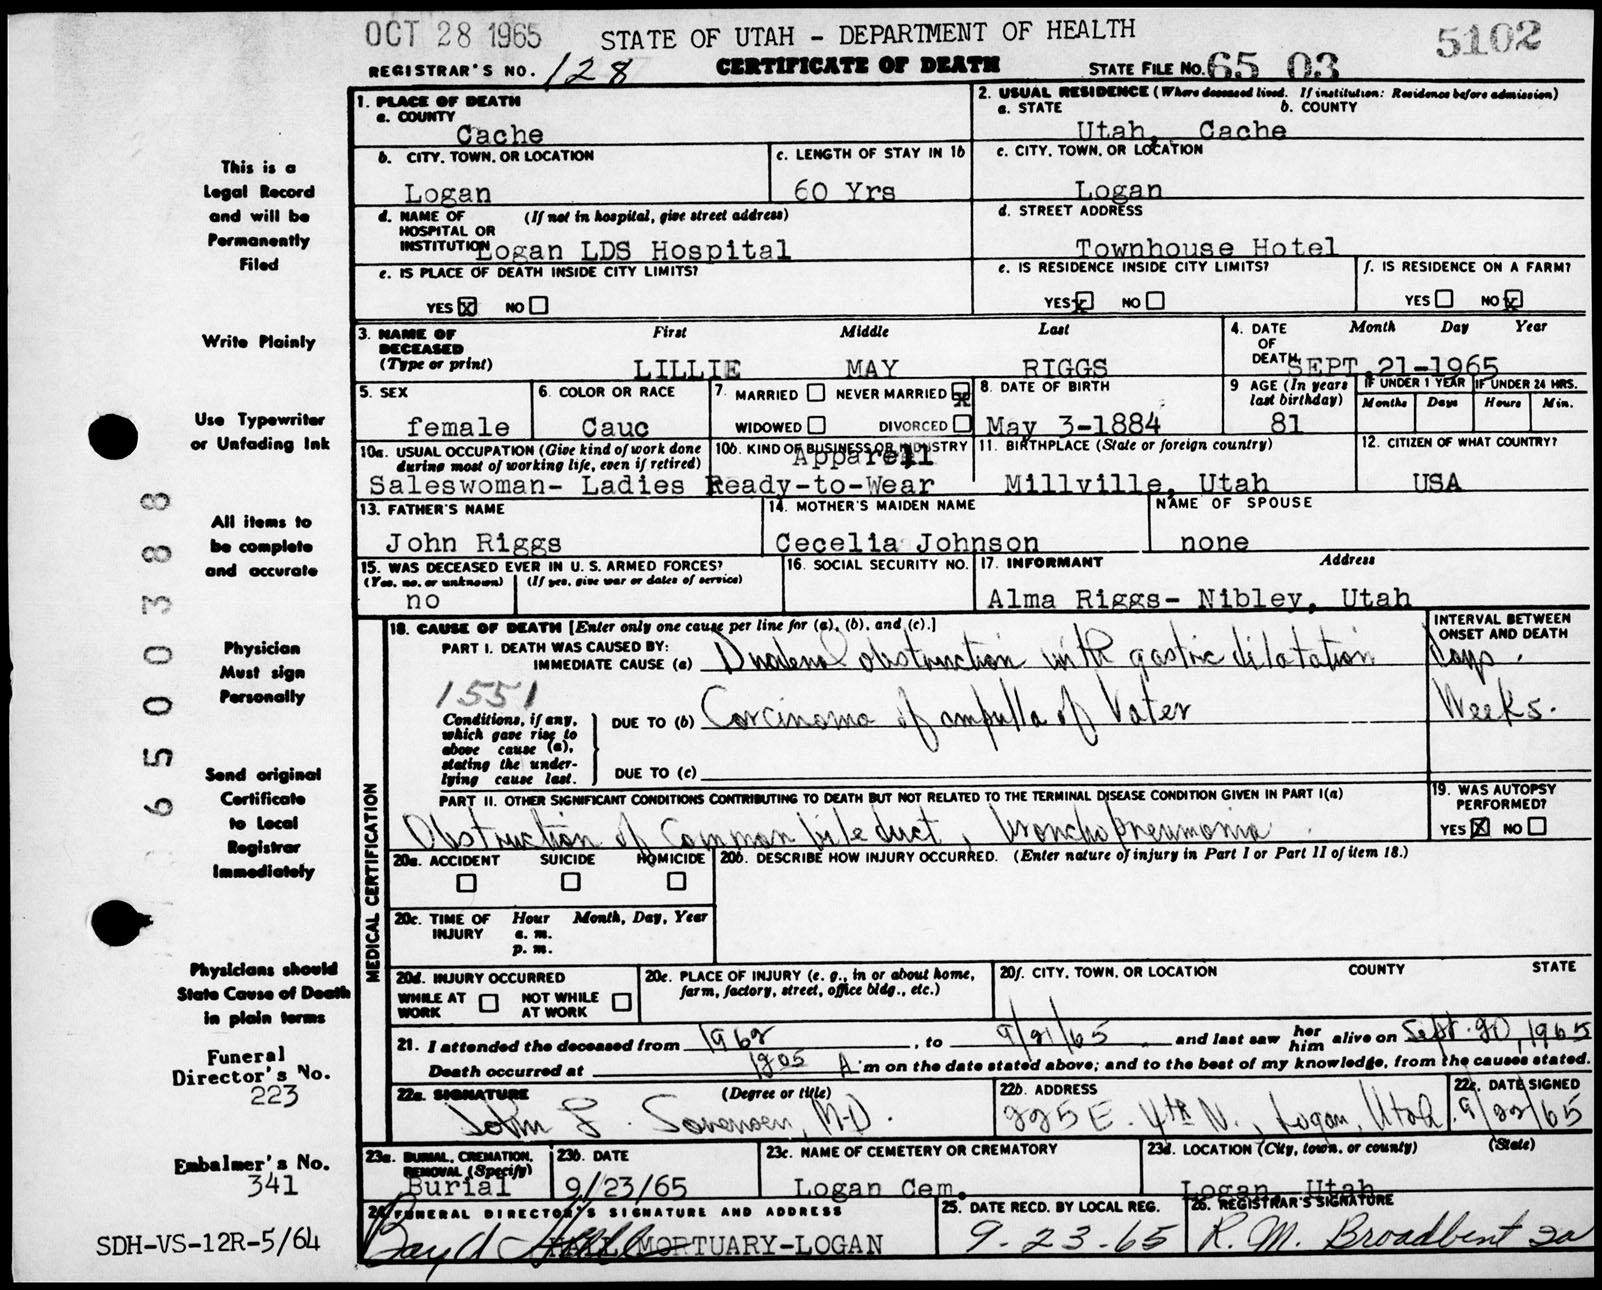 OCT 28 1965 STATE OF UTAH - DEPARTMENT OF HEALTH 5102
REGISTRAR'S NO. 128 CERTIFICATE OF DEATH STATE FILE NO. 65 03
1. PLACE OF DEATH
a. COUNTY
Cache
2. USUAL RESIDENCE (Where deceased lived. If institution: Residence before admission)
a. STATE b. COUNTY
Utah, Cache
b. CITY, TOWN, OR LOCATION
Logan
c. LENGTH OF STAY IN 1b
60 Yrs
c. CITY, TOWN, OR LOCATION
Logan
d. NAME OF (If not in hospital, give street address)
HOSPITAL OR
INSTITUTION Logan LDS Hospital
d. STREET ADDRESS
Townhouse Hotel
e. IS PLACE OF DEATH INSIDE CITY LIMITS?
YES X NO
e. IS RESIDENCE INSIDE CITY LIMITS?
YES X NO
f. IS RESIDENCE ON A FARM?
YES NO X
3. NAME OF First Middle Last
DECEASED
(Type or print) LILLIE MAY RIGGS
4. DATE Month Day Year
OF
DEATH SEPT. 21-1965
5. SEX
female
6. COLOR OR RACE
Cauc
7. MARRIED NEVER MARRIED X
WIDOWED DIVORCED
8. DATE OF BIRTH
May 3-1884
9 AGE (In years
last birthday)
81
IF UNDER 1 YEAR IF UNDER 24 HRS.
Months Days Hours Min.
10a. USUAL OCCUPATION (Give kind of work done
during most of working life, even if retired)
10b. KIND OF BUSINESS OR INDUSTRY
Apparell
Saleswoman- Ladies Ready-to-Wear
11. BIRTHPLACE (State or foreign country)
Millville, Utah
12. CITIZEN OF WHAT COUNTRY?
USA
13. FATHER'S NAME
John Riggs
14. MOTHER'S MAIDEN NAME
Cecelia Johnson
NAME OF SPOUSE
none
15. WAS DECEASED EVER IN U. S. ARMED FORCES?
(Yes, no, or unknown) (If yes, give war or dates of service)
no
16. SOCIAL SECURITY NO.
17. INFORMANT Address
Alma Riggs- Nibley, Utah
MEDICAL CERTIFICATION
18. CAUSE OF DEATH [Enter only one cause per line for (a), (b), and (c).]
INTERVAL BETWEEN
ONSET AND DEATH
PART I. DEATH WAS CAUSED BY:
IMMEDIATE CAUSE (a) Duodenal obstruction with gastric dilatation Days.
1551
Conditions, if any,
which gave rise to
above cause (a),
stating the under-
lying cause last.
DUE TO (b) Carcinoma of ampulla of Vater Weeks.
DUE TO (c)
PART II. OTHER SIGNIFICANT CONDITIONS CONTRIBUTING TO DEATH BUT NOT RELATED TO THE TERMINAL DISEASE CONDITION GIVEN IN PART I(a)
Obstruction of Common bile duct, bronchopneumonia.
19. WAS AUTOPSY
PERFORMED?
YES X NO
20a. ACCIDENT SUICIDE HOMICIDE
20b. DESCRIBE HOW INJURY OCCURRED. (Enter nature of injury in Part I or Part II of item 18.)
20c. TIME OF Hour Month, Day, Year
INJURY a. m.
p. m.
20d. INJURY OCCURRED
WHILE AT WORK NOT WHILE AT WORK
20e. PLACE OF INJURY (e. g., in or about home,
farm, factory, street, office bldg., etc.)
20f. CITY, TOWN, OR LOCATION COUNTY STATE
21. I attended the deceased from 1962, to 9/21/65 and last saw her him alive on Sept. 20, 1965
Death occurred at 1205 A.m on the date stated above; and to the best of my knowledge, from the causes stated.
22a. SIGNATURE (Degree or title)
John G. Sorensen, M.D.
22b. ADDRESS
225 E. 4th N., Logan, Utah
22c. DATE SIGNED
9/22/65
23a. BURIAL, CREMATION,
REMOVAL (Specify)
Burial
23b. DATE
9/23/65
23c. NAME OF CEMETERY OR CREMATORY
Logan Cem.
23d. LOCATION (City, town, or county) (State)
Logan, Utah
24. FUNERAL DIRECTOR'S SIGNATURE AND ADDRESS
MORTUARY-LOGAN
25. DATE RECD. BY LOCAL REG.
9-23-65
26. REGISTRAR'S SIGNATURE
R. M. Broadbent
This is a
Legal Record
and will be
Permanently
Filed
Write Plainly
Use Typewriter
or Unfading Ink
All items to
be complete
and accurate
Physician
Must sign
Personally
Send original
Certificate
to Local
Registrar
Immediately
Physicians should
State Cause of Death
in plain terms
Funeral
Director's No.
223
Embalmer's No.
341
SDH-VS-12R-5/64
65003888